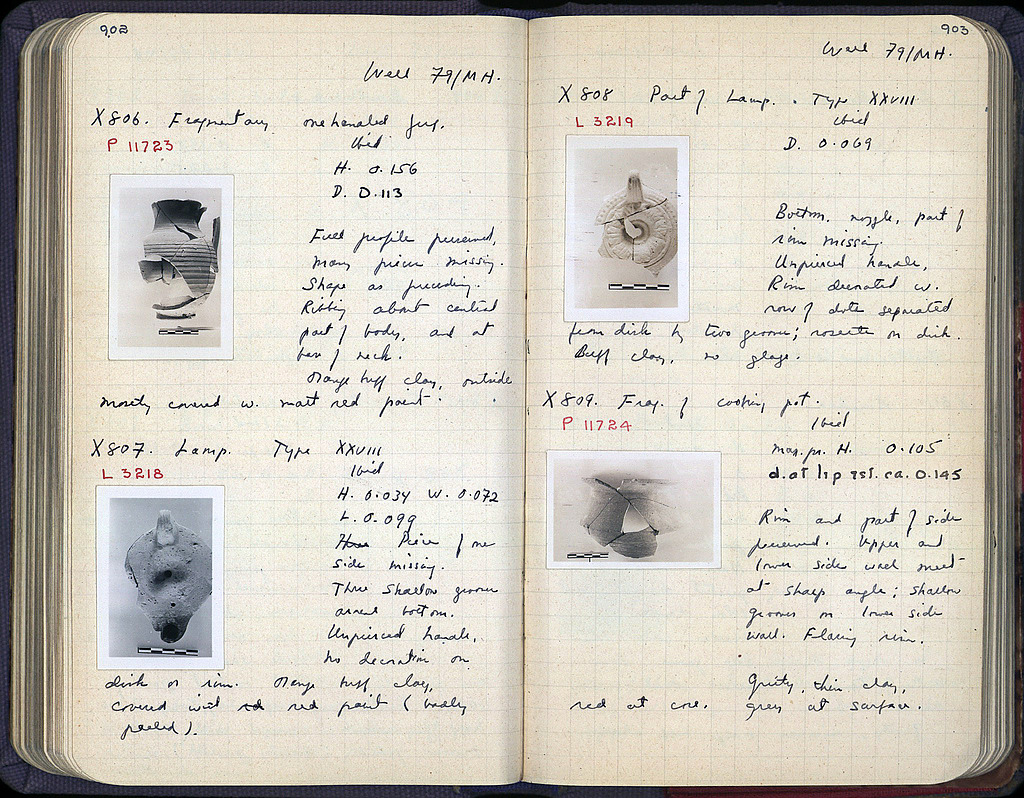 902
Well 79/MH.
X806. Fragmentary one handled jug.
P 11723
Ibid
H. 0.156
D. 0.113
Full profile preserved,
many pieces missing.
Shape as preceding.
Ribbing about central
part of body, and at
base of neck.
Orange buff clay, outside
mostly covered w. matt red paint.
X807. Lamp. Type XXVIII
L 3218
Ibid
H. 0.034 W. 0.072
L. 0.099
Piece of one
side missing.
Three shallow grooves
around bottom.
Unpierced handle,
no decoration on
disk or rim. Orange buff clay,
covered with red paint (badly
peeled).
903
Well 79/MH.
X808 Part of Lamp. Type XXVIII
L 3219
ibid
D. 0.069
Bottom, nozzle, part of
rim missing.
Unpierced handle,
Rim decorated w.
row of dots separated
from disk by two grooves; rosette on disk.
Buff clay, no glaze.
X809. Frag. of cooking pot.
P 11724
Ibid
max. pr. H. 0.105
d. at lip rst. ca. 0.145
Rim and part of side
preserved. Upper and
lower side wall meet
at sharp angle; shallow
grooves on lower side
wall. Flaring rim.
Gritty, thin clay,
red at core. grey at surface.